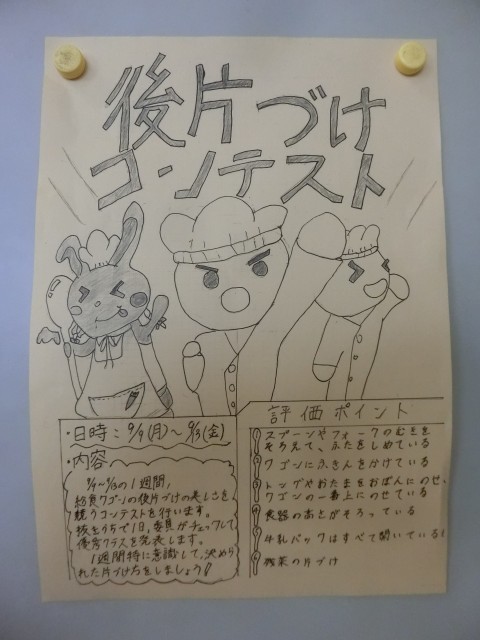 後片づけ
コンテスト
・日時:9/9(月)～9/13(金)
・内容
9/9～9/13の1週間,
給食ワゴンの後片づけの美しさを
競うコンテストを行います。
抜きうちで1日,委員がチェックして
優秀クラスを発表します。
1週間特に意識して,決めら
れた片づけ方をしましょう!
評価ポイント
スプーンやフォークのむきを
そろえて、ふたをしめている
ワゴンにふきんをかけている
トングやおたまをおぼんにのせ、
ワゴンの一番上にのせている
食器のあとがそろっている
牛乳パックはすべて開いている
残菜の片づけ